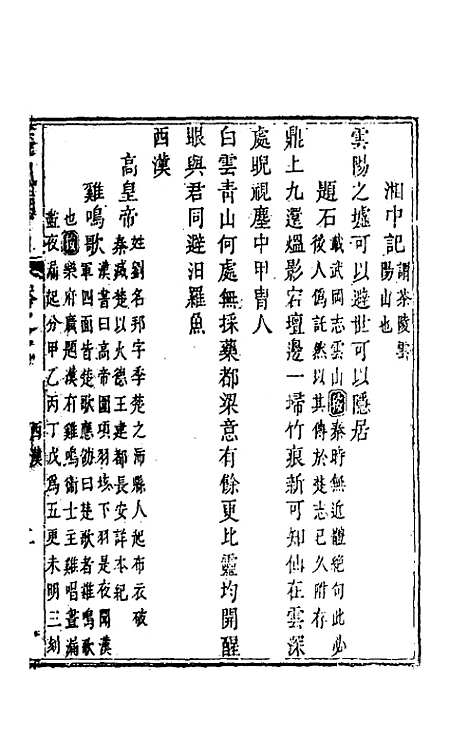 湘中記謂茶陵雲陽山也
雲陽之墟可以避世可以隱居
題石載武岡志雲山秦時無近體絶句此必後人偽託然以其傳於楚志已久附存
鼎上九還煴影宕壇邊一埽竹痕新可知仙在雲深
處睨視塵中甲胄人
白雲青山何處無採藥都梁意有餘更比靈均開醒
眼與君同避汨羅魚
西漢
高皇帝姓劉名邦字季楚之沛縣人起布衣破秦滅楚以火德王建都長安詳本紀
雞鳴歌漢書曰高帝圍項羽垓下羽是夜聞漢軍四面皆楚歌應劭曰楚歌者雞鳴歌
也樂府廣題漢有雞鳴衛士主雞唱晝漏盡夜漏起分甲乙丙丁戊為五更未明三刻
西漢